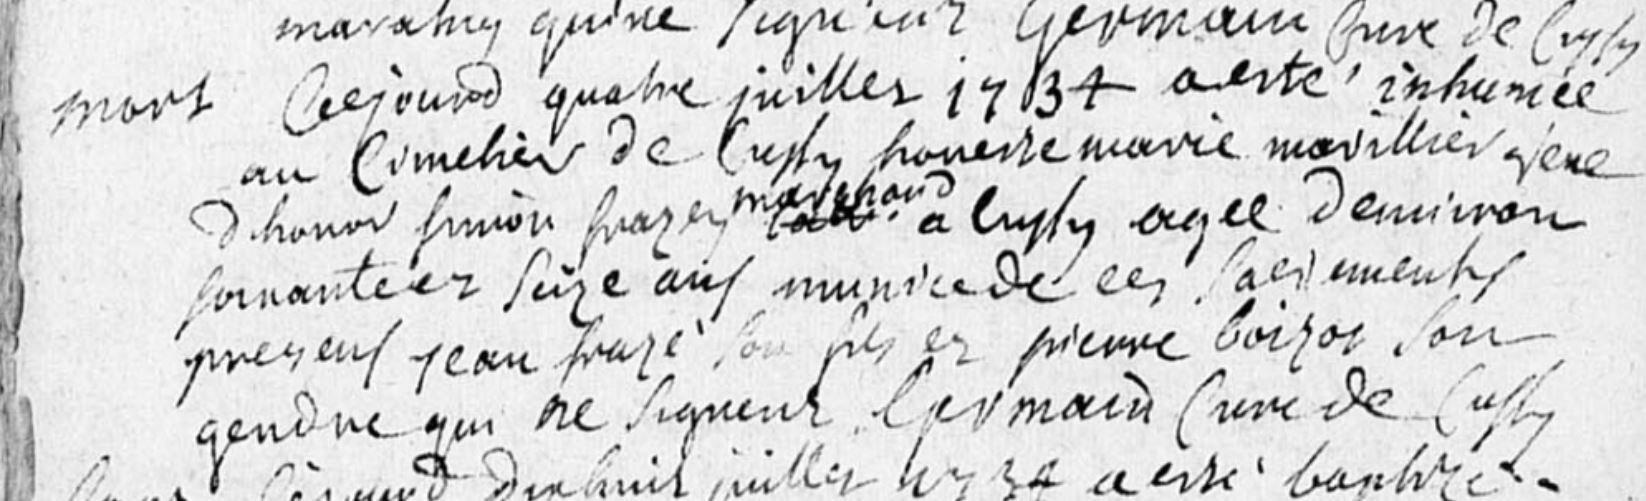 qui ne signent Germain Cure de Cussy
mort Cejourd quatre juillet 1734 a esté inhumée
au Cimetier de Cussy honneste marie marillier
d'honor simon frazey marchand a Cussy agee denviron
soixante et seize ans municede ces sacrements
presens jean frazé son fils et pierre boizot son
gendre qui ne signent Germain Cure de Cussy
Cejourd juillet 1734 a esté baptizé